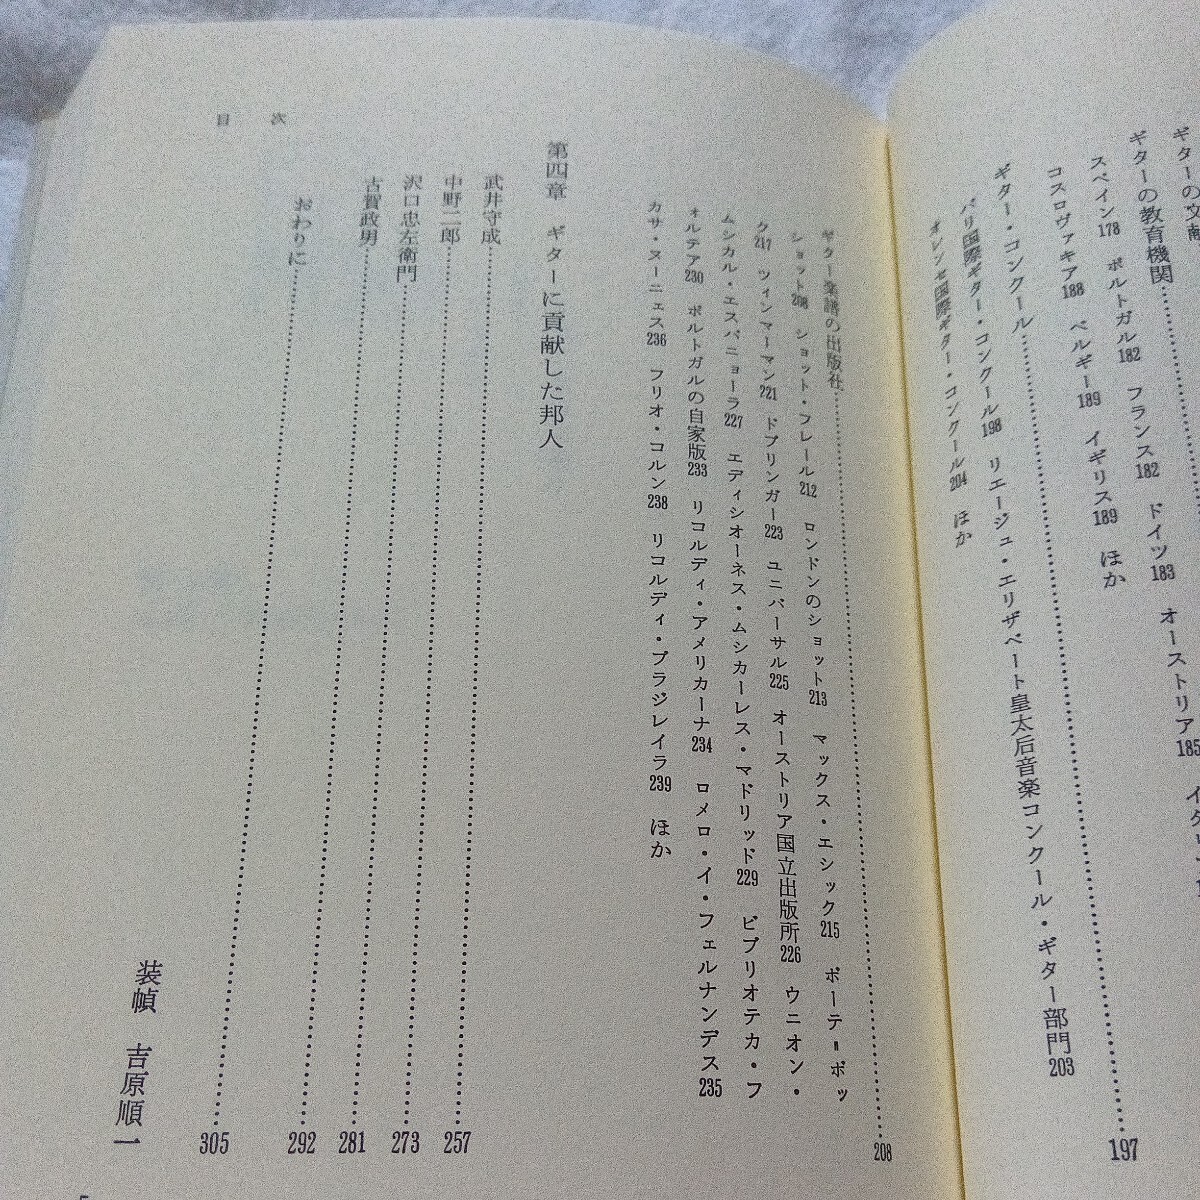 ギターの文献
ギターの教育機関
スペイン178 ポルトガル182 フランス182 ドイツ183 オーストリア185
コスロヴァキア188 ベルギー189 イギリス189 ほか
ギター・コンクール 197
パリ国際ギター・コンクール198 リエージュ・エリザベート皇太后音楽コンクール・ギター部門203
オレンセ国際ギター・コンクール204 ほか
ギター楽譜の出版社 208
ショット208 ショット・フレール212 ロンドンのショット213 マックス・エシック215 ボーテ=ボッ
ク217 ツィンマーマン221 ドブリンガー223 ユニバーサル225 オーストリア国立出版所226 ウニオン・
ムシカル・エスパニョーラ227 エディシオーネス・ムシカーレス・マドリッド229 ビブリオテカ・フ
ォルテア230 ポルトガルの自家版233 リコルディ・アメリカーナ234 ロメロ・イ・フェルナンデス235
カサ・ヌーニェス236 フリオ・コルン238 リコルディ・ブラジレイラ239 ほか
第四章 ギターに貢献した邦人
武井守成 257
中野二郎 273
沢口忠左衛門 281
古賀政男 292
おわりに 305
装幀 吉原順一
目次
5